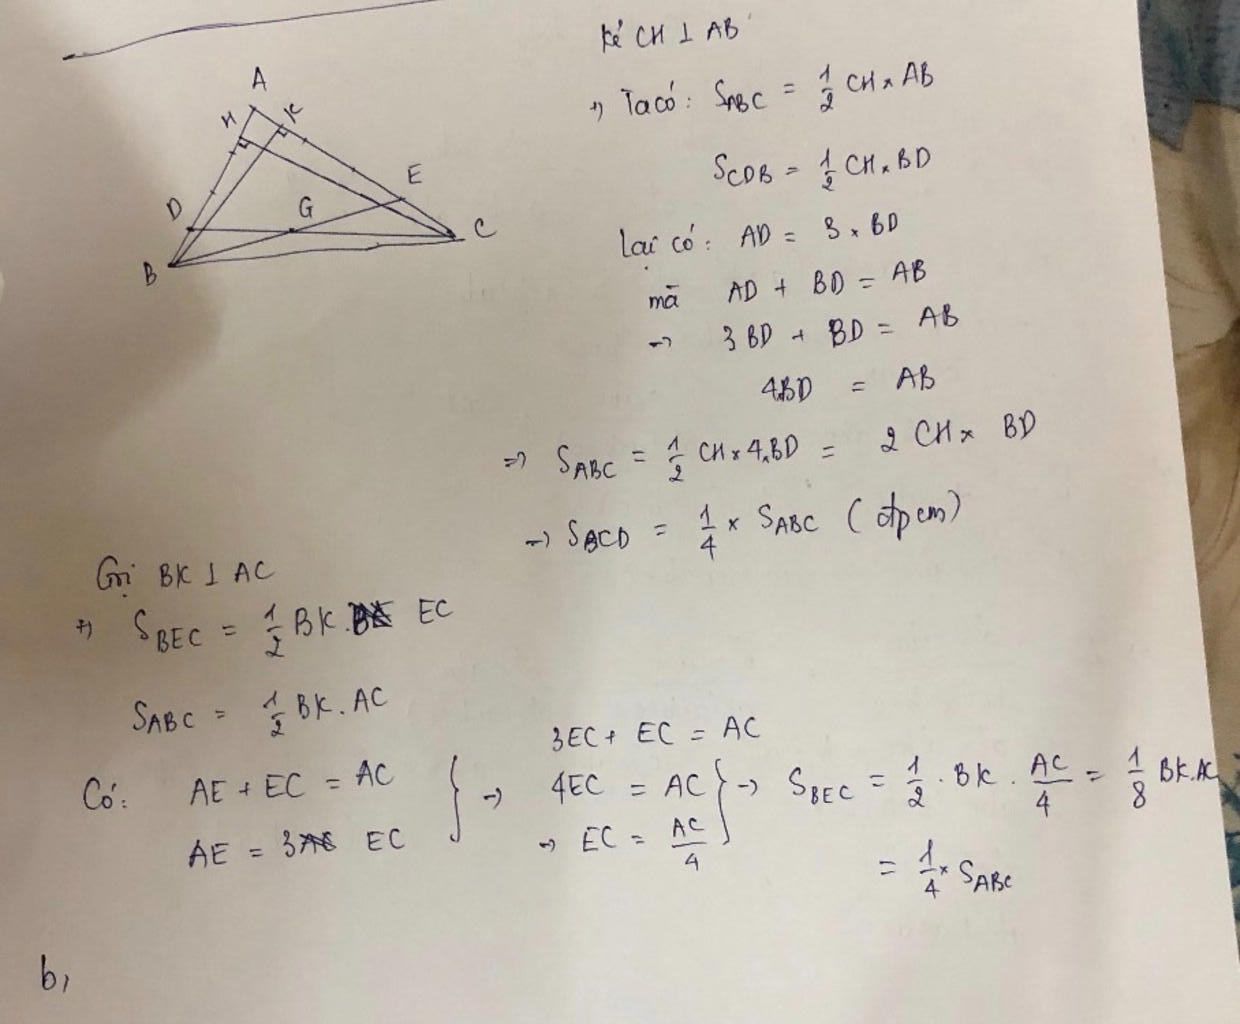 A
H
K
D
G
E
B
C
Kẻ CH ⊥ AB
→ Ta có: S_ABC = 1/2 CH x AB
S_CDB = 1/2 CH x BD
Lại có: AD = 3 x BD
mà AD + BD = AB
→ 3BD + BD = AB
4BD = AB
=> S_ABC = 1/2 CH x 4.BD = 2 CH x BD
→ S_BCD = 1/4 x S_ABC (đpcm)
Gọi BK ⊥ AC
→ S_BEC = 1/2 BK. EC
S_ABC = 1/2 BK. AC
Có: AE + EC = AC
AE = 3 EC
} → 3EC + EC = AC
4EC = AC
→ EC = AC/4
} → S_BEC = 1/2 . BK . AC/4 = 1/8 BK.AC
= 1/4 x S_ABC
b,